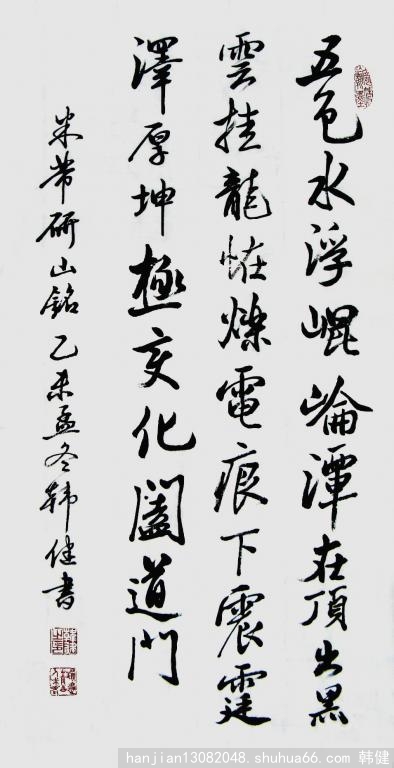 五色水浮崐崘潭在頂出黑
雲挂龍恠爍電痕下震霆
澤厚坤極变化闔道門
米芾研山銘乙未孟冬韩健書
hanjian13082048. shuhua66. com 韩健